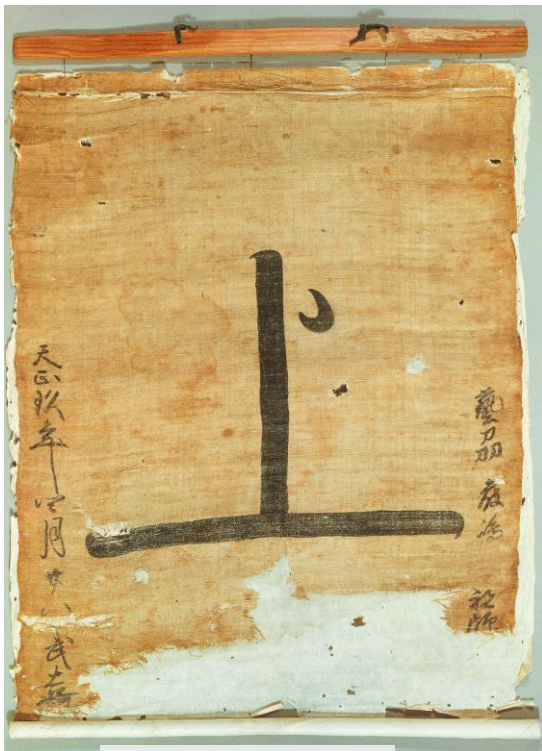 藝刕 厳嶋 祝師
上
天正玖年四月廿八 武吉